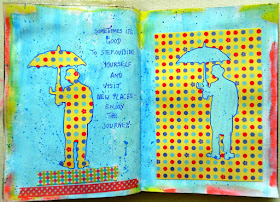 SOMETIMES IT'S
GOOD
TO STEP OUTSIDE
YOURSELF
AND
VISIT
NEW PLACES
ENJOY
THE
JOURNEY